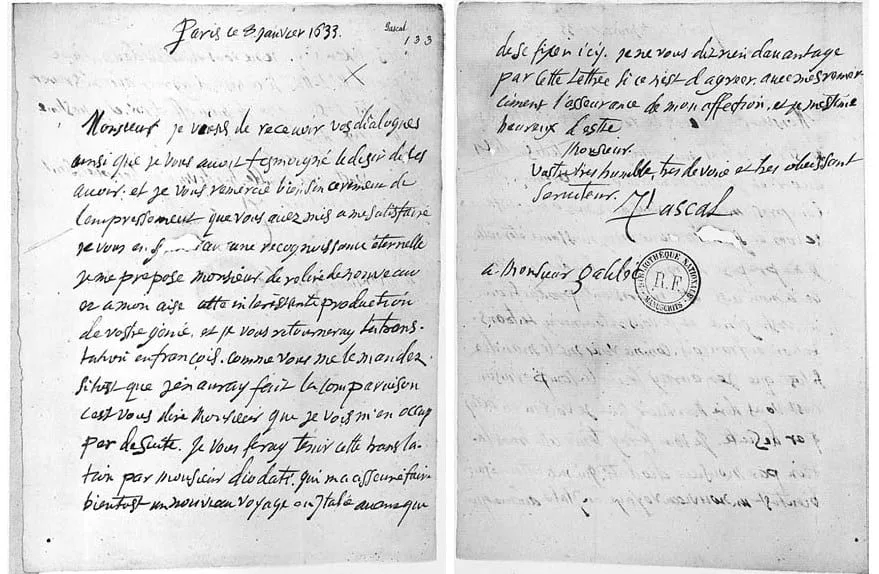 Paris ce 8 janvier 1633.
Pascal
133
Monsieur je viens de recevoir vos dialogues
ainsi que je vous avoit tesmoigné le desir de les
avoir. et je vous remercie bien sincerement de
l'empressement que vous avez mis a me satisfaire
je vous en une recognoissance éternelle
je me propose monsieur de relire de nouveau
et a mon aise cette interessante production
de vostre génie. et je vous retourneray la trans-
lation en françois. comme vous me le mandez.
sitost que j'en auray fait la comparaison
c'est vous dire Monsieur que je vois m'en occup
per de suite. Je vous feray tenir cette transla-
tion par monsieur diodati. qui m'a asseuré faire
bientost un nouveau voyage en Italie avant que
de se fixer icy. je ne vous dit rien davantage
par cette lettre si ce n'est d'agreer avec mes remer-
ciment l'asseurance de mon affection. et je m'estime
heureux d'estre
Monsieur.
Vostre tres humble, tres devoué et tres obeissant
serviteur.
Pascal
a Monsieur galilée
BIBLIOTHÈQUE NATIONALE
R.F.
MANUSCRITS